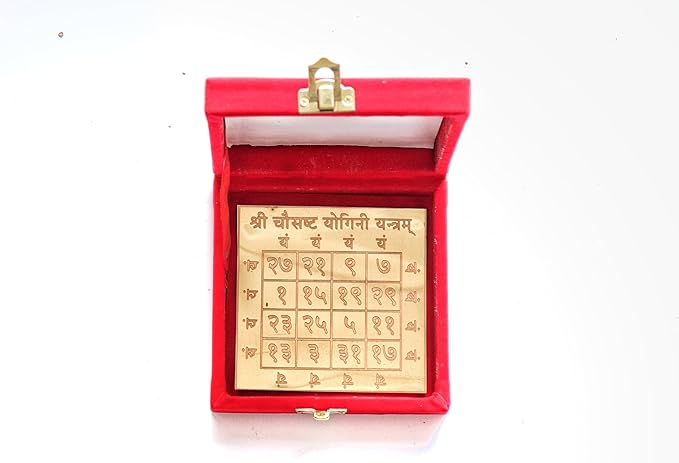 श्री चौसष्ट योगिनी यन्त्रम्
यं यं यं यं
यं २७ २१ ९ ७ यं
यं १ १५ १९ २९ यं
यं २३ २५ ५ ११ यं
यं १३ ३ ३१ १७ यं
यं यं यं यं